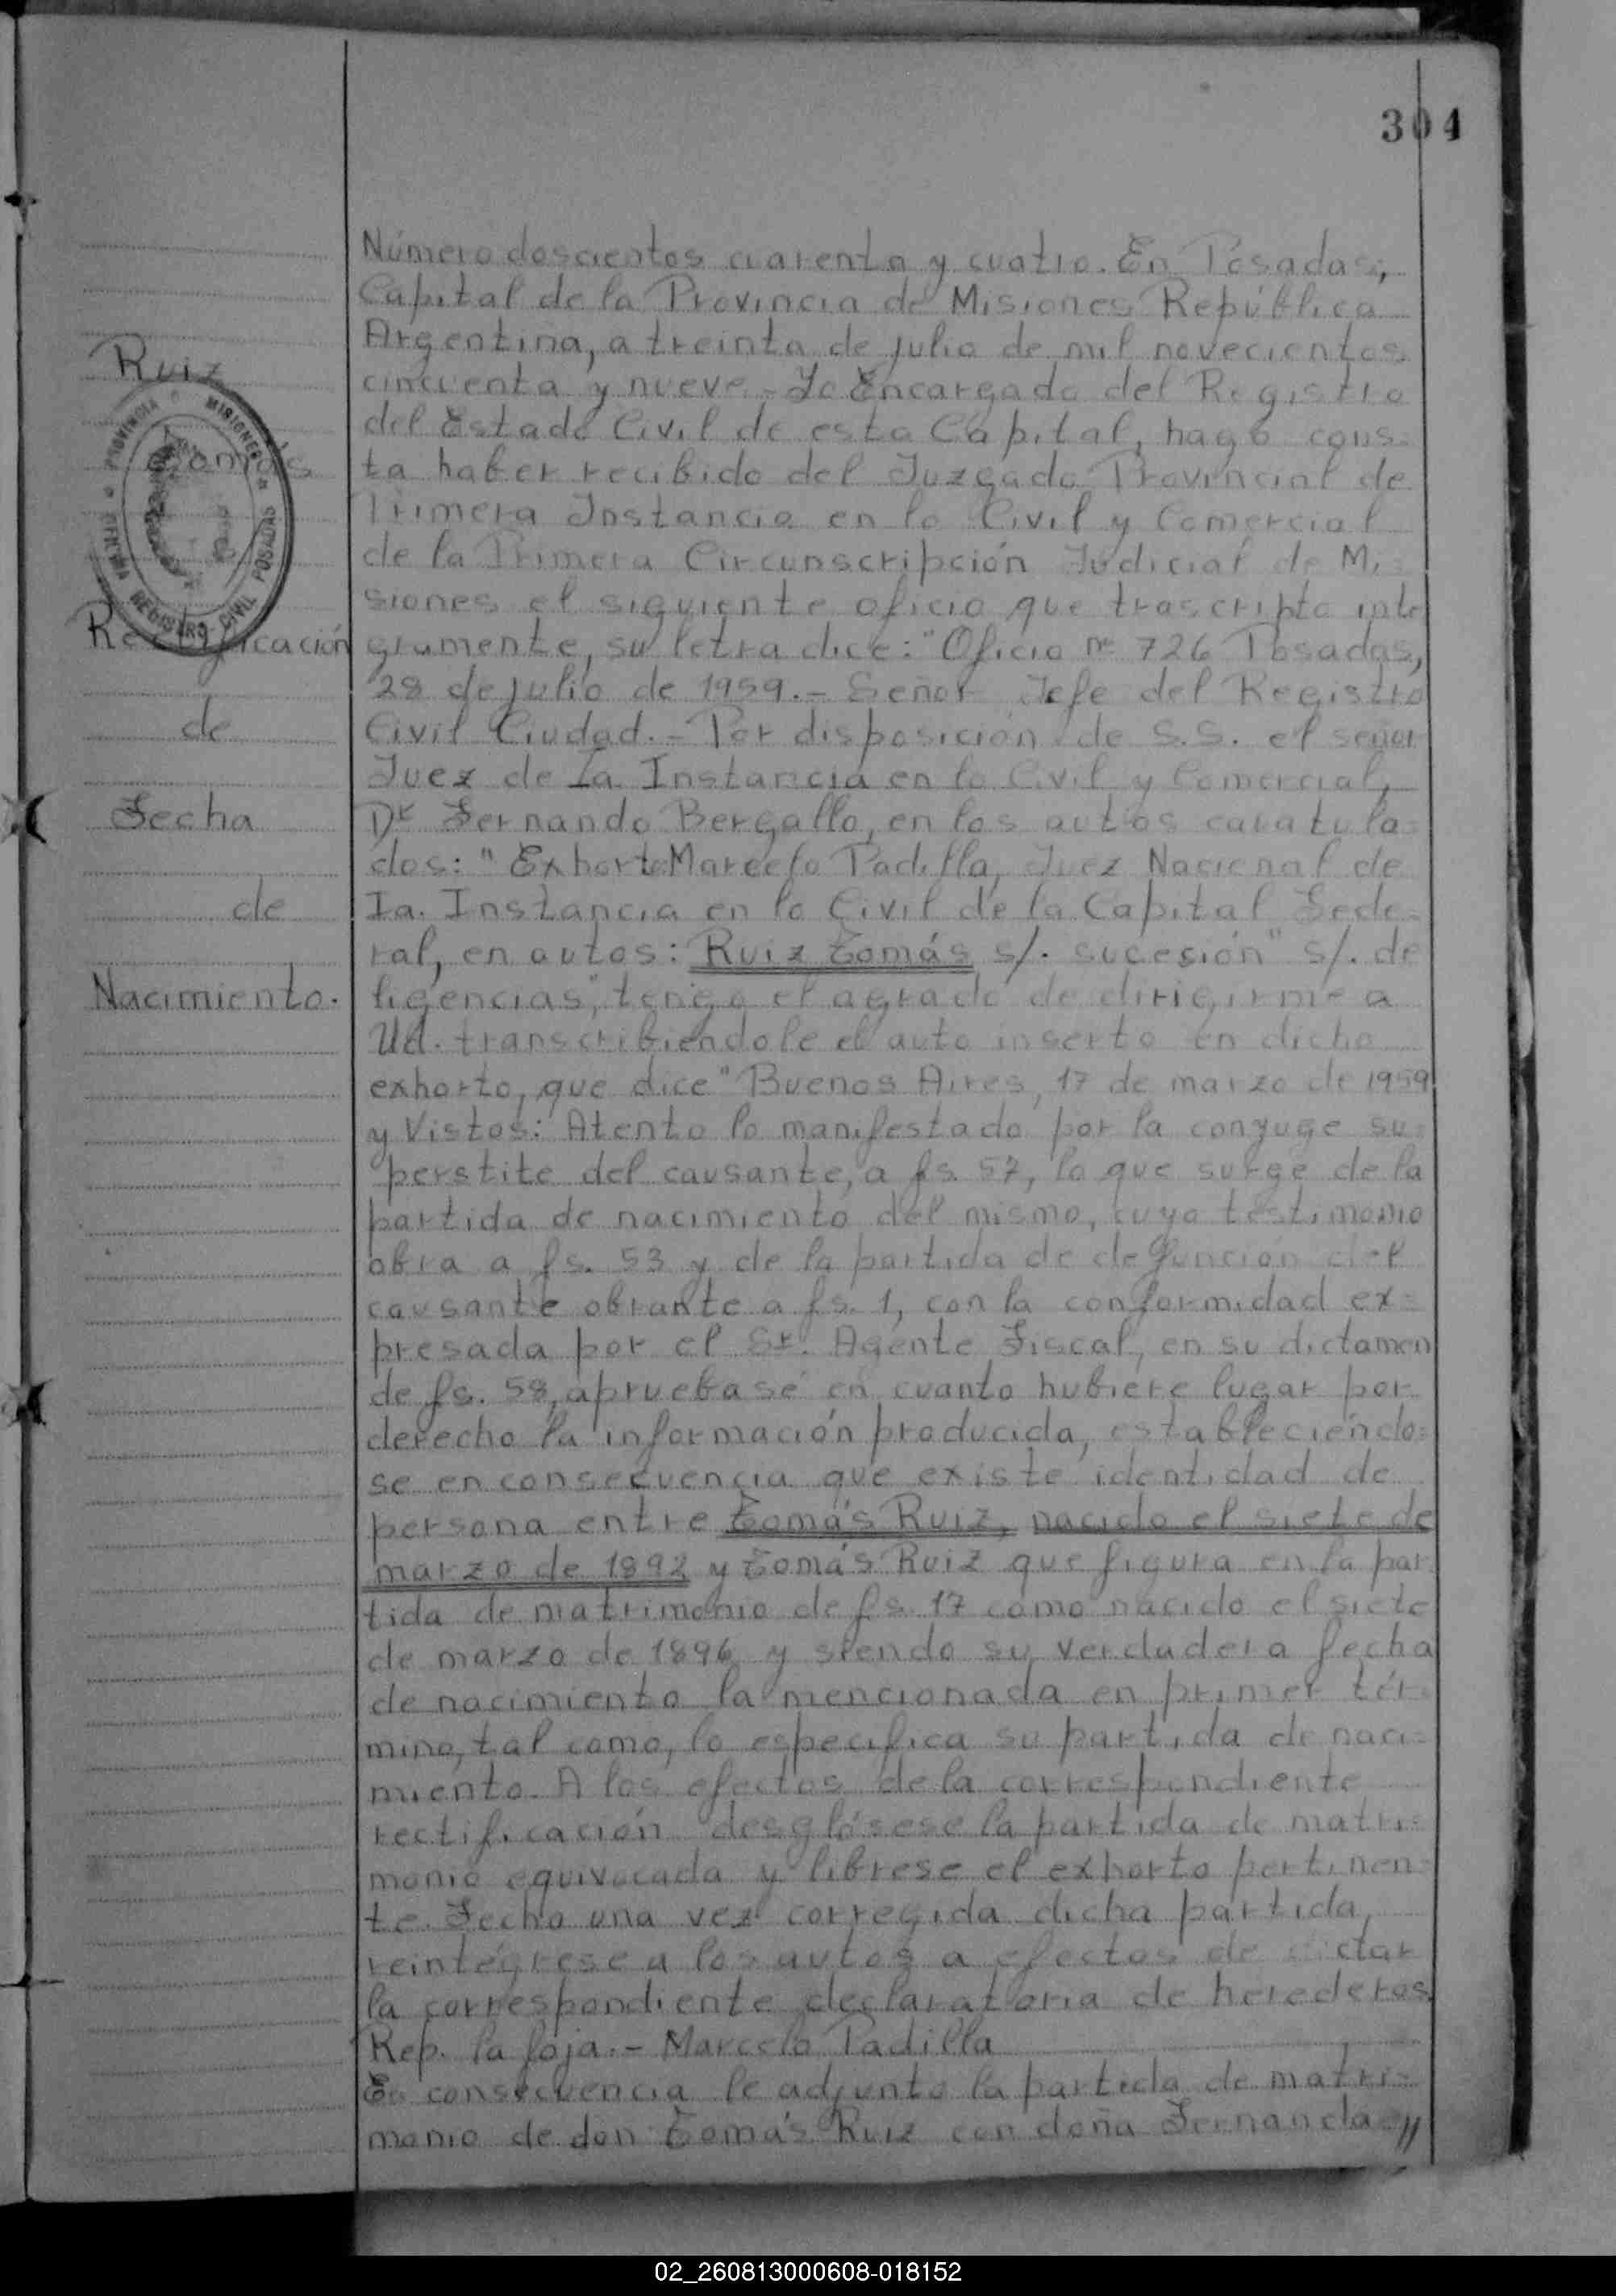 304
Número doscientos cuarenta y cuatro. En Posadas,
Capital de la Provincia de Misiones República
Argentina, a treinta de julio de mil novecientos
cincuenta y nueve.- Yo Encargado del Registro
del Estado Civil de esta Capital, hago cons-
ta haber recibido del Juzgado Provincial de
Primera Instancia en lo Civil y Comercial
de la Primera Circunscripción Judicial de Mi-
siones el siguiente oficio que trascripto inte
gramente, su letra dice: "Oficio nº 726 Posadas,
28 de julio de 1959.- Señor Jefe del Registro
Civil Ciudad.- Por disposición de S.S. el señor
Juez de Ia Instancia en lo Civil y Comercial,
Dr Fernando Bergallo, en los autos caratula-
dos: "Exhorto Marcelo Padilla, Juez Nacional de
Ia. Instancia en lo Civil de la Capital Fede-
ral, en autos: Ruiz Tomás s/. sucesión" s/. de
ligencias", tengo el agrado de dirigirme a
Ud. transcribiendole el auto inserto en dicho
exhorto, que dice "Buenos Aires, 17 de marzo de 1959
y Vistos: Atento lo manifestado por la conyuge su-
perstite del causante, a fs. 57, lo que surge de la
partida de nacimiento del mismo, cuyo testimonio
obra a fs. 53 y de la partida de defunción del
causante obrante a fs. 1, con la conformidad ex-
presada por el Sr. Agente Fiscal, en su dictamen
de fs. 58, apruebase en cuanto hubiere lugar por
derecho la información producida, estableciéndo-
se en consecuencia que existe identidad de
persona entre Tomás Ruiz, nacido el siete de
marzo de 1892 y Tomás Ruiz que figura en la par
tida de matrimonio de fs. 17 como nacido el siete
de marzo de 1896 y siendo su verdadera fecha
de nacimiento la mencionada en primer tér-
mino, tal como, lo especifica su partida de naci-
miento. A los efectos de la correspondiente
rectificación desglósese la partida de matri-
monio equivocada y librese el exhorto pertinen-
te. Fecho una vez corregida dicha partida,
reintégrese a los autos a efectos de dictar
la correspondiente declaratoria de herederos.
Rep. la foja.- Marcelo Padilla
En consecuencia le adjunto la partida de matri-
monio de don Tomás Ruiz con doña Fernanda //
Ruiz
Tomás
Rectificación
de
Fecha
de
Nacimiento.
PROVINCIA MISIONES
REGISTRO CIVIL POSADAS
02_260813000608-018152